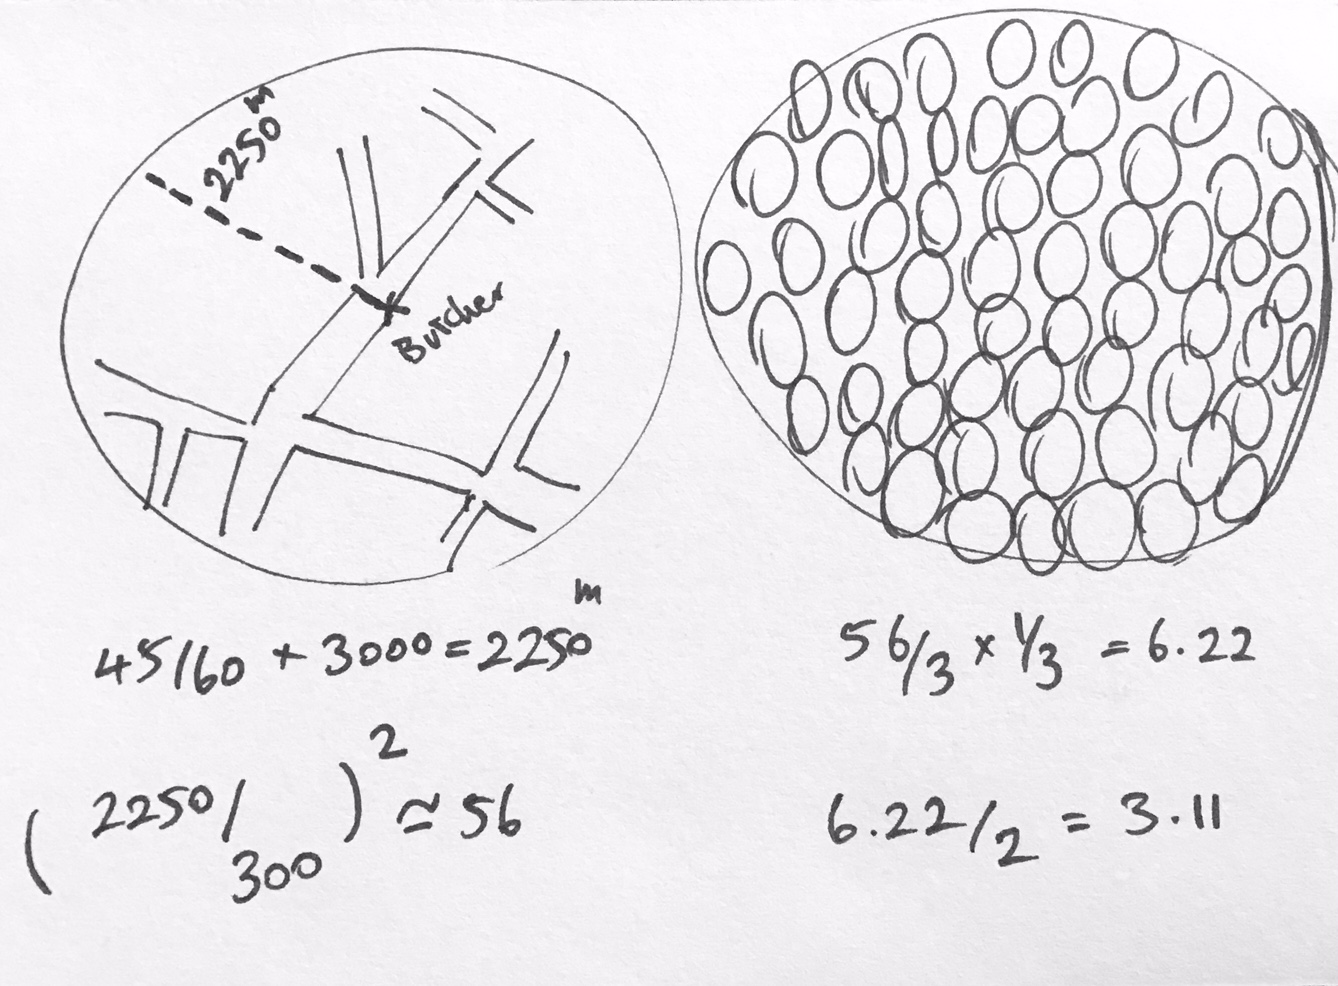 2250 m
Butcher
45/60 + 3000 = 2250 m
(2250/300)² ≃ 56
56/3 × 1/3 = 6.22
6.22/2 = 3.11